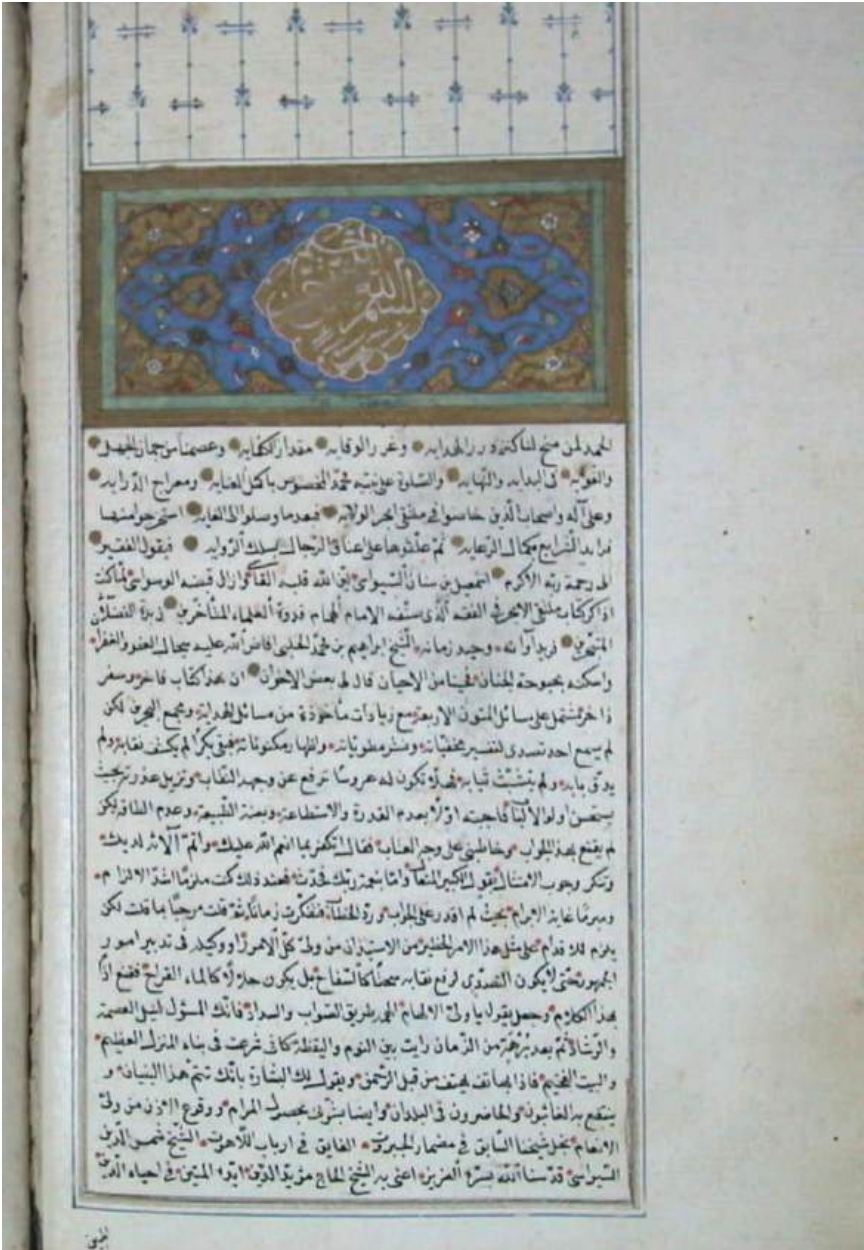 بسم الله الرحمن الرحيم
الحمد لمن منح لنا كنه درر الهدايه وغرر الوقايه مقدار الكفايه وعصمنا من الجهل
والغوايه فى البدايه والنهايه والصلوة على نبيه محمد المخصوص باكمل العنايه ومعراج الدرايه
وعلى آله واصحاب الذين خاضوا فى ملتقى ابحر الولايه فبعد ما وصلوا الى الغايه استخرجوا منها
فرايد الشرايع بكمال الرعايه ثم علقوها على اعناق الرجال بسلك الروايه فيقول الفقير
الى رحمة ربه الاكرم اسمعيل بن سنان السيواسى الله قلبه ازال الوسواس لما كنت
اذاكر كتاب ملتقى الابحر فى الفقه الذى صنفه الامام الهمام قدوة العلماء المتأخرين زبدة الفضلاء
المتبحرين فريد اوانه وحيد زمانه الشيخ ابراهيم بن محمد الحلبى افاض الله عليه سجال العفو والغفران
واسكنه بحبوحة الجنان فحينا من الاحيان قال لى بعض الاخوان ان هذا كتاب فاخر وسفر
ذاخر مشتمل على مسائل المتون الاربعة مع زيادات مأخوذة من مسائل الهداية ومجمع البحرين لكن
لم يسمع احد تصدى لتفسير مخفياته ونشر مطوياته واظهار مكنوناته فبقى بكرا لم يكشف نقابه ولم
يدق بابه ولم يتشبث ثيابه فهلا تكون له عروسا ترفع عن وجهه النقاب وتزيل عذرته بحيث
يستحسن اولوا الالباب فاجبته اولا بعدم القدرة والاستطاعة الطبيعة وعدم الطاقة لكن
لم يقنع بهذا الجواب وخاطبنى على وجه العتاب فقال اتكفر بما انعم الله عليك واتم آلائه لديك
وتنكر وجوب الامتثال بقول الكبير المتعال واما بنعمة ربك فحدث فعند ذلك كنت ملزما اشد الالزام
ومبرما غاية الابرام بحيث لم اقدر على الجواب ورد الخطاب فتفكرت زمانا ثم قلت مرحبا بما قلت لكن
يلزم للاقدام على مثل هذا الامر الخطير من الاستيذان من ولى كل الامور ووكيله فى تدبير امور
الجمهور حتى لا يكون التصدى لرفع نقابه كالسفاح بل يكون حلالا كالماء القراح فقنع اذا
بهذا الكلام وجعل يقول يا ولى الالهام الهمه طريق الصواب والسداد فانك المسؤل لنيل العصمة
والرشاد ثم بعد برهة من الزمان رايت بين النوم واليقظة كانى شرعت فى بناء المنزل العظيم
والبيت الفخيم فاذا بهاتف يهتف من قبل الرحمن ويقول لك البشارة بانك تتم هذا البنيان و
ينتفع به الغائبون والحاضرون فى البلدان وايضا بشرنى بحصول المرام ووقوع الاذن من ولى
الانعام نجل شيخنا السابق فى مضمار الجبروت الفايق فى ارباب اللاهوت الشيخ شمس الدين
السيواسى قدسنا الله بسره العزيز اعنى به الشيخ الحاج مؤيد الدين ايده المتين فى احياء الدين